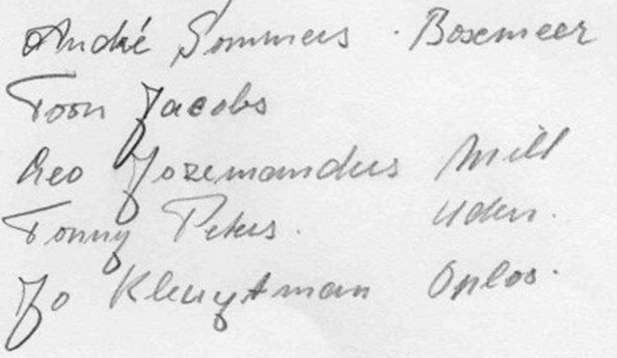 André Sommers . Boxmeer
Toon Jacobs
Leo Jozemanders Mill
Tonny Peters. Uden.
Jo Kluytman Oploo.